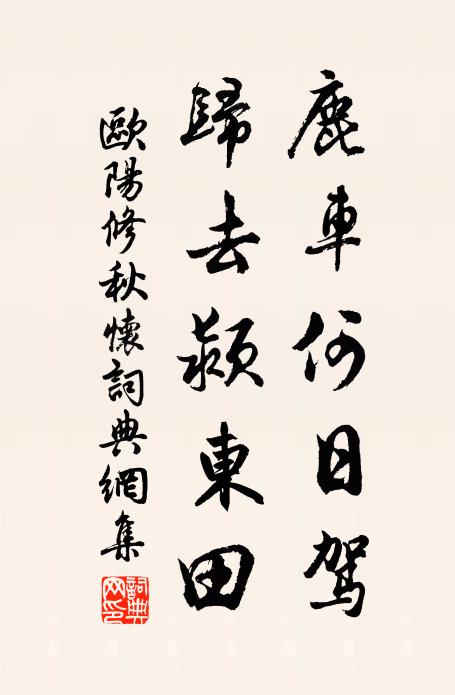 鹿車何日駕
歸去潁東田
歐陽修秋懷詞典網集
詞典網印